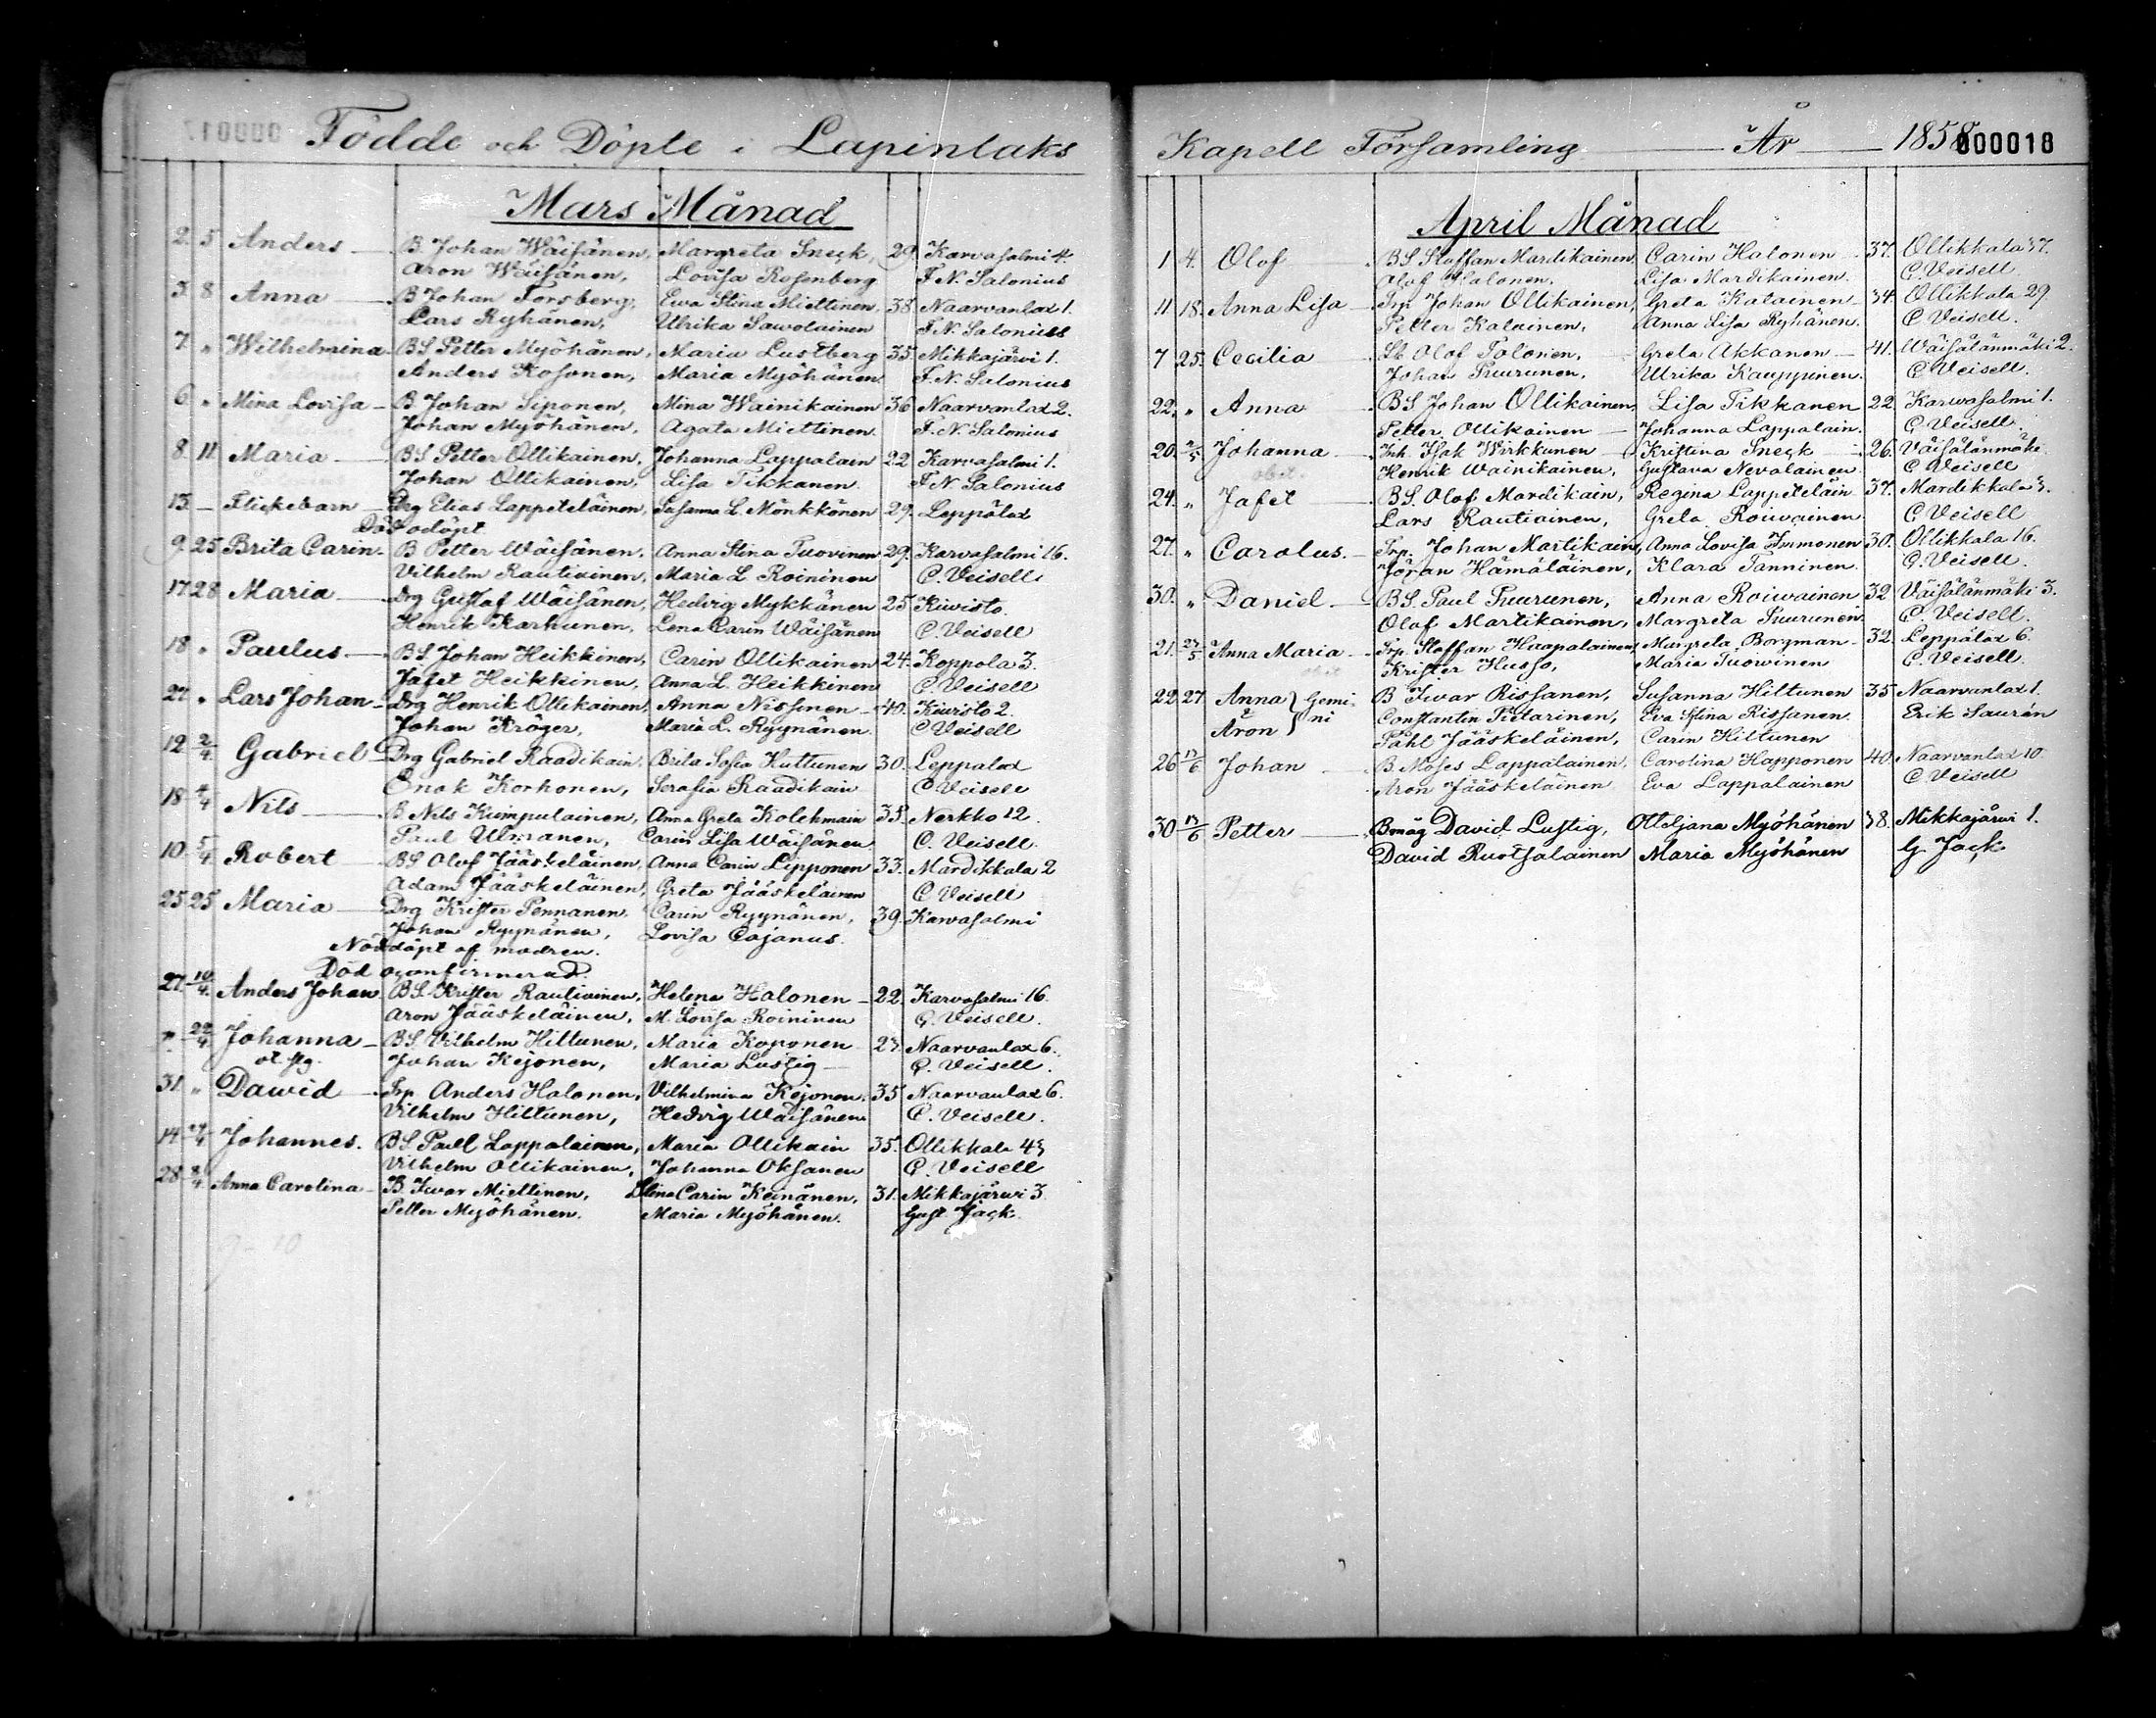 Födde och Döpte i Lapinlaks
Mars Månad
2. 5 Anders — B Johan Wäisänen, Margreta Sneck, 29. Karvasalmi 4.
Aron Wäisänen, Lovisa Rosenberg F. N. Salonius
3. 8 Anna — B Johan Forsberg, Ewa Stina Miettinen, 38 Naarvanlax 1.
Lars Ryhänen, Ulrika Sawolainen F. N. Salonius
7 " Wilhelmina. BS Petter Myöhänen, Maria Lustberg 35 Mikkajärvi 1.
Anders Kosonen, Maria Myöhänen F. N. Salonius
6. " Mina Lovisa — B Johan Siponen, Mina Wainikainen 36 Naarvanlax 2.
Johan Myöhänen, Agata Miettinen. F. N. Salonius
8. 11 Maria — BS Petter Ollikainen, Johanna Lappalain 22 Karvasalmi 1.
Johan Ollikainen, Lisa Tikkanen. F N Salonius
13. — Flickebarn — Drg Elias Lappeteläinen, Susanna L. Mönkkönen 29. Leppälax
Död odöpt
9. 25 Brita Carin. B Petter Wäisänen, Anna Stina Tuovinen 29. Karvasalmi 16.
Vilhelm Rautiainen, Maria L Roininen C. Veisell
17 28 Maria — Drg Gustaf Wäisänen, Hedvig Mykkänen 25 Kiwisto.
Henrik Karhunen, Lena Carin Wäisänen C. Veisell
18 " Paulus — BS. Johan Heikkinen, Carin Ollikainen 24. Koppola 3.
Jafet Heikkinen, Anna L. Heikkinen C. Veisell
27. " Lars Johan — Drg Henrik Ollikainen, Anna Nissinen — 40. Kiuristo 2.
Johan Kröger, Maria L. Ryynänen. C Veisell
12 2/4. Gabriel — Drg Gabriel Raadikain, Brita Sofia Huttunen 30. Leppalax
Enok Korhonen, Serafia Raadikain C Veisell
18 4/4 Nils — B. Nils Kumpulainen, Anna Greta Kolehmain 35. Nerkko 12.
Paul Ulmanen, Carin Lisa Wäisänen C. Veisell.
10. 5/4 Robert — BS Olof Jääskeläinen, Anna Carin Lipponen 33. Mardikkala 2
Adam Jääskeläinen, Greta Jääskeläinen C Veisell
25 25 Maria — Drg Krister Pennanen. Carin Ryynänen, 39. Karvasalmi
Johan Ryynänen, Lovisa Cajanus.
Nöddöpt af modren.
Död oconfirmerad.
27. 10/4. Anders Johan. BS. Krister Rautiainen, Helena Halonen — 22. Karvasalmi 16.
Aron Jääskeläinen, M. Lovisa Roininen C. Veisell.
22/4 Johanna — BS. Vilhelm Hiltunen, Maria Koponen 23. Naarvanlax 6.
Johan Kejonen, Maria Lustig — C. Veisell.
31. " Dawid — Trp Anders Halonen, Vilhelmina Kejonen. 35 Naarvanlax 6.
Vilhelm Hiltunen, Hedvig Wäisänen C. Veisell.
14 27/4 Johannes. BS. Paul Lappalainen, Maria Ollikain 35. Ollikkala 43
Vilhelm Ollikainen, Johanna Oksanen C. Veisell
28 8/4 Anna Carolina — B. Iwar Miettinen, Stina Carin Keinänen, 31. Mikkajärwi 3
Petter Myöhänen. Maria Myöhänen. Gust Jack.
Kapell Församling — År — 1858
000018
April Månad
1 4. Olof — BS Staffan Mardikainen, Carin Halonen 37. Ollikkala 37.
Olof Halonen. Lisa Mardikainen. C. Veisell.
11 18. Anna Lisa — Trp Johan Ollikainen, Greta Kalainen — 34. Ollikkala 29.
Petter Kalainen, Anna Lisa Ryhänen. C Veisell.
7 25. Cecilia — Olof Tolonen, Greta Akkanen — 41. Wäisälänmäki 2.
Johan Puurunen, Ulrika Kauppinen. C. Veisell.
22. " Anna BS Johan Ollikainen, Lisa Tikkanen 22. Karwasalmi 1.
Petter Ollikainen — Johanna Lappalain. C. Veisell.
20. 2/5 Johanna — Inh. Isak Wirkkunen Kristina Sneck 26. Väisälänmäki
obit. Henrik Wainikainen, Gustava Nevalainen C Veisell
24. " Jafet — BS. Olof Mardikain, Regina Lappeteläin 37. Mardikkala 3.
Lars Rautiainen, Greta Roiwainen C Veisell
27. " Carolus. — Trp. Johan Martikain, Anna Lovisa Immonen 30. Ollikkala 16.
Jöran Hämäläinen, Klara Tanninen. C. Veisell.
30. " Daniel. — BS. Paul Puurunen, Anna Roiwainen 32 Väisälänmäki 3.
Olof Martikainen, Margreta Puurunen. C. Veisell.
21. 27/5 Anna Maria — Trp. Staffan Haapalainen, Margreta Borgman — 32. Leppälax 6.
obit Krister Husso, Maria Tuowinen C. Veisell.
22 27 Anna } Gemi- B Iwar Rissanen, Susanna Hiltunen 35 Naarvanlax 1.
& Aron } ni Constantin Tietarinen, Eva Stina Rissanen. Erik Saurén
Påhl Jääskeläinen, Carin Hiltunen
26 13/6 Johan — B. Moses Lappalainen, Carolina Happonen 40. Naarvanlax 10.
Aron Jääskeläinen Eva Lappalainen C Veisell
30 13/6 Petter — Bmåg David Lustig, Ottiljana Myöhänen 38. Mikkajärwi 1.
David Ruotsalainen Maria Myöhänen G. Jack